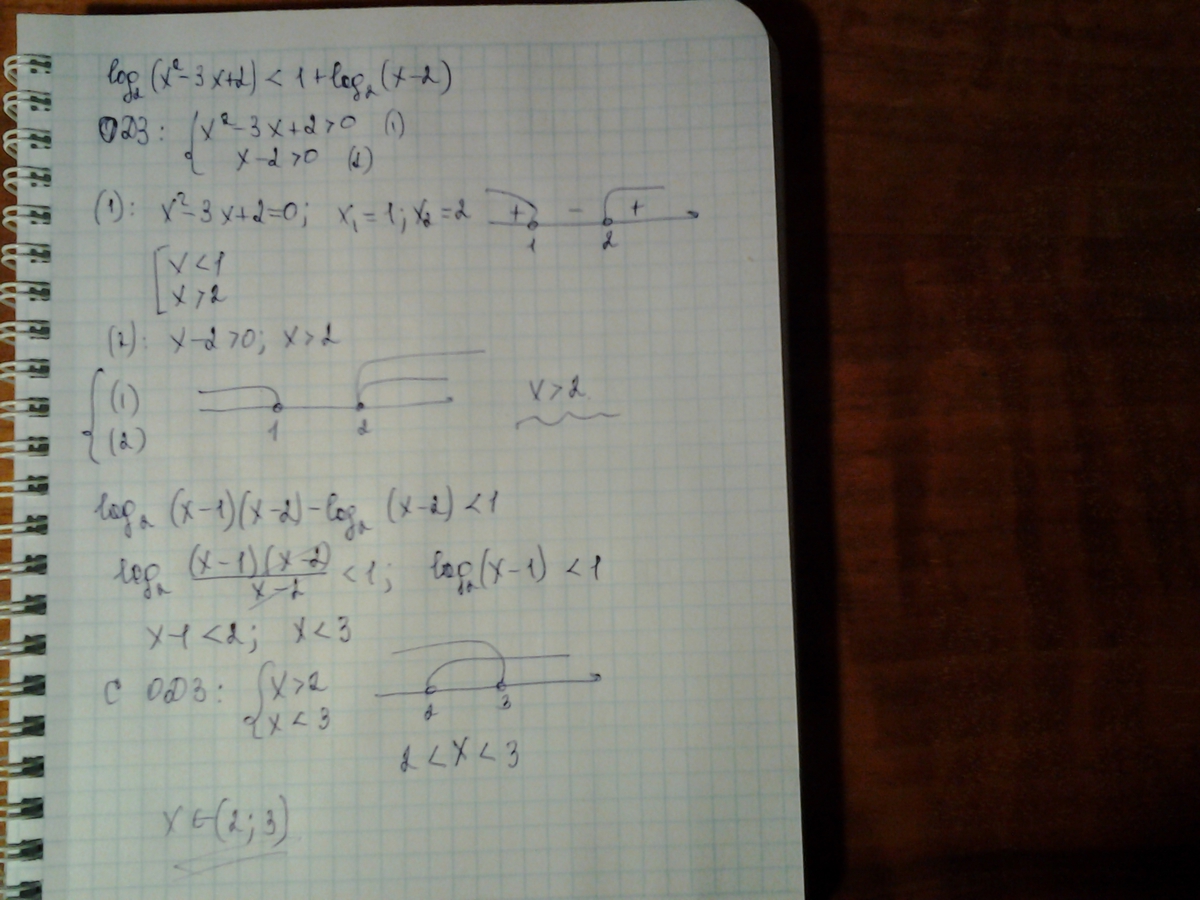 log₂(x²-3x+2) < 1+log₂(x-2)
ОДЗ: { x²-3x+2>0 (1)
x-2>0 (2)
(1): x²-3x+2=0; x₁=1; x₂=2 + - +
1 2
[ x<1
x>2
(2): x-2>0; x>2
{ (1)
(2) 1 2 x>2
log₂ (x-1)(x-2)-log₂ (x-2) <1
log₂ (x-1)(x-2)/x-2 <1; log₂(x-1) <1
x-1<2; x<3
С ОДЗ: { x>2
x<3 2 3
2 < x < 3
x∈(2;3)